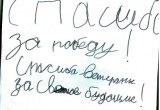 Спасиб
за победу!
Спасибо ветераны
За светлое будущие!